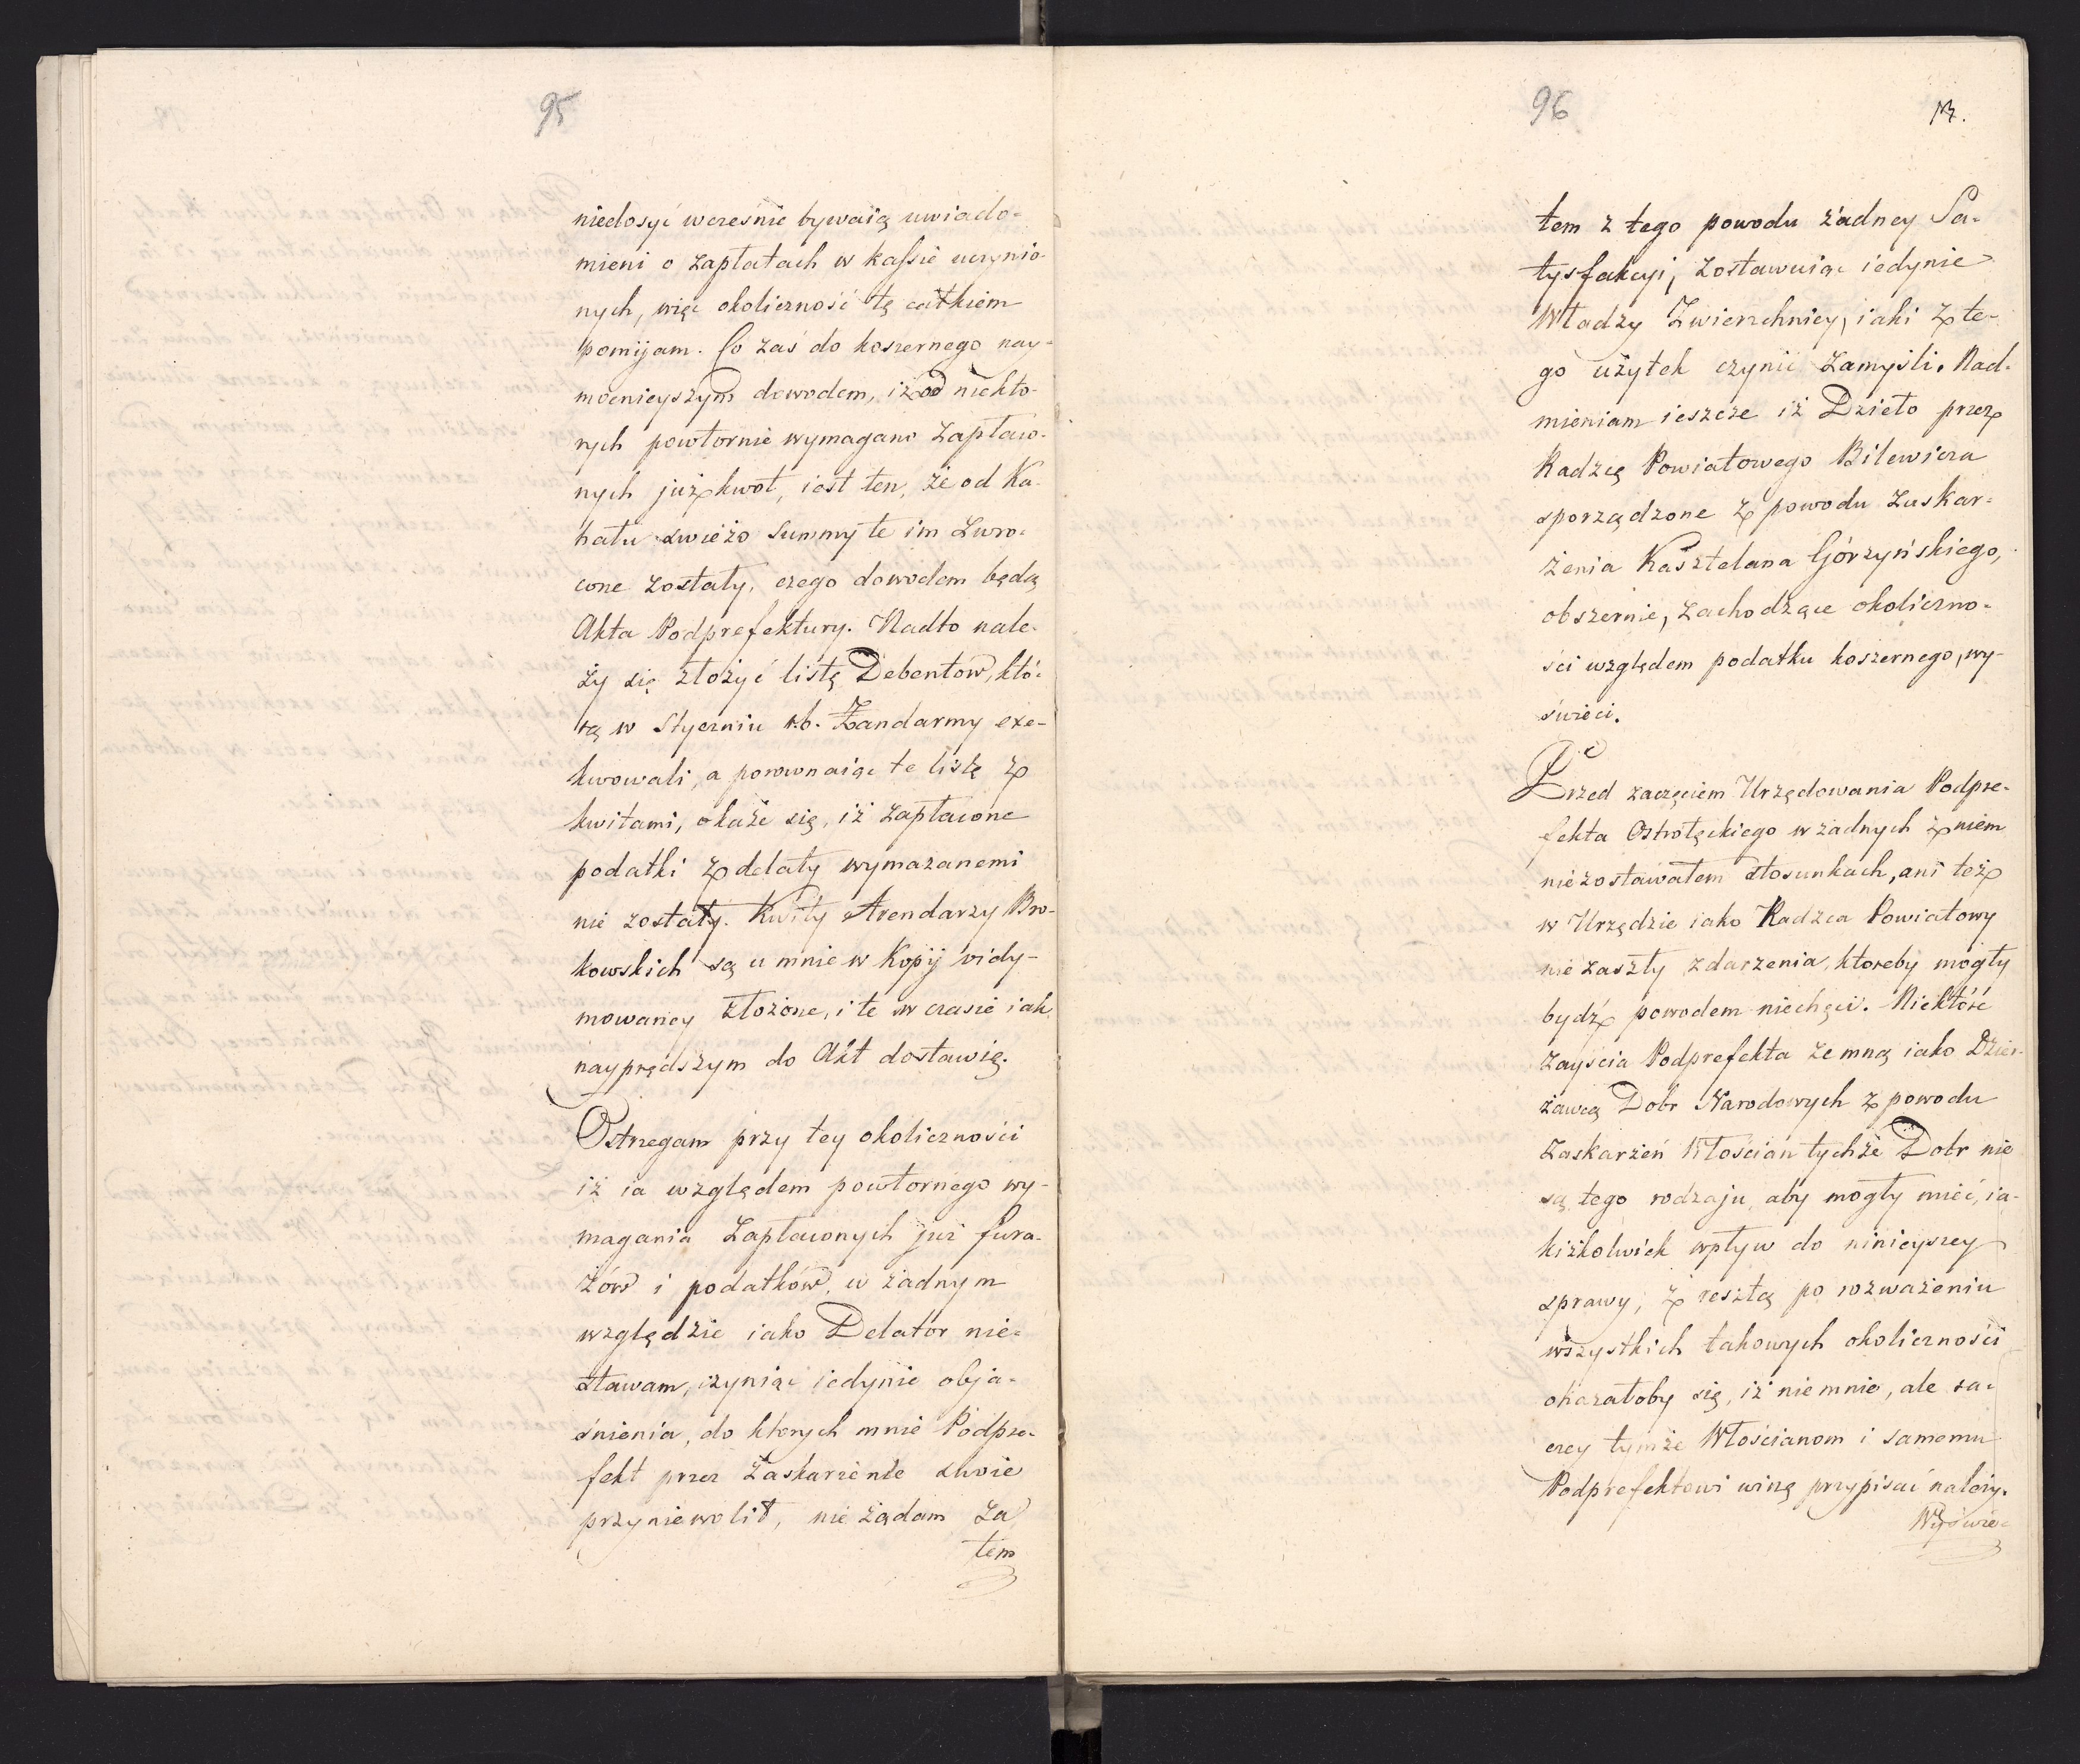 95
niedosyć wcześnie bywaią uwiado-
mieni o zapłatach w kassie uczynio-
nych, więc okoliczność tę całkiem
pomijam. Co zaś do koszernego nay-
mocnieyszym dowodem, iż od niekto-
rych powtornie wymagano zapłaco-
nych już kwot, iest ten, że od Ka-
hału świeżo summy te im zwro-
cone zostały, czego dowodem będą
Akta Podprefektury. Nadto nale-
ży się złożyć listę Debentów, któ-
rą w Styczniu r.b. Żandarmy exe-
kwowali, a porownaiąc te listę z
kwitami, okaże się, iż zapłacone
podatki z delaty wymazanemi
nie zostały. Kwity Arendarzy Bro-
kowskich są u mnie w Kopij vidy-
mowaney złożone, i te w czasie iak
nayprędszym do Akt dostawię.
Ostrzegam przy tey okoliczności
iż ia względem powtornego wy-
magania zapłaconych już fura-
żów i podatków, w żadnym
względzie iako Delator nie-
stawam, czyniąc iedynie obja-
śnienia, do ktorych mnie Podpre-
fekt przez zaskarzenie swoie
przyniewolił, nie żądam za
tem
96
tem z tego powodu żadney Sa-
tysfakcyi, zostawuiąc iedynie
Władzy Zwierzchniey, iaki z te-
go użytek czynić zamyśli. Nad-
mieniam ieszcze iż Dzieło przez
Radzcę Powiatowego Bilewicza
sporządzone z powodu zuskar-
żenia Kasztelana Górzyńskiego,
obszernie, zachodzące okoliczno-
ści względem podatku koszernego, wy-
świeci.
Przed zaczęciem Urzędowania Podpre-
fekta Ostrołęckiego w żadnych z niem
niezostawałem stosunkach, ani też
w Urzędzie iako Radzca Powiatowy
nie zaszły zdarzenia, ktoreby mogły
bydź powodem niechęci. Niektóre
zayścia Podprefekta ze mną iako Dzier-
żawcą Dobr Narodowych z powodu
zaskarżeń Włościan tychże Dobr nie
są tego rodzaju, aby mogły mieć, ia-
kiżkolwiek wpływ do ninieyszey
sprawy, z resztą po rozważeniu
wszystkich takowych okoliczności
okazałoby się, iż nie mnie, ale ra-
czey tymże Włościanom i samemu
Podprefektowi winę przypisać należy.
Wyświe-